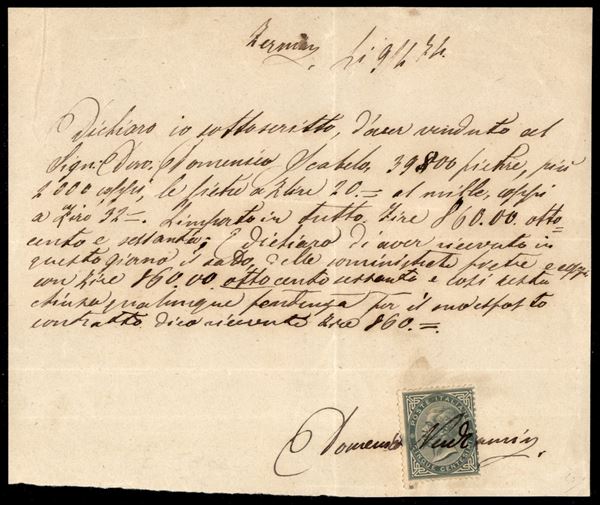 Zerman, li 9/4 74.
Dichiaro io sottoscritto, d'aver venduto al
Sign. Domensio Scabelo, 39800 pietre, più
2000 coppi, le pietre a Lire 20.= al mille, coppi
a Liré 32=. L'importo in tutto Lire 860.00. otto=
cento e sessanta; E dichiaro di aver ricevuto in
questo giorno il saldo, delle soministrate pietre e coppi
con Lire 860.00 otto cento sessanta e così resta
chiusa qualunque pendenza per il suesposto
contratto dico ricevute Lire 860.=.
POSTE ITALIANE
CINQUE CENTESIMI
Domenico Vendramin